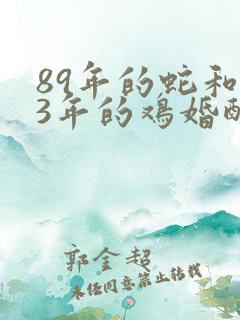 89年的蛇和
3年的鸡婚
郭金超
未经同意禁止转载